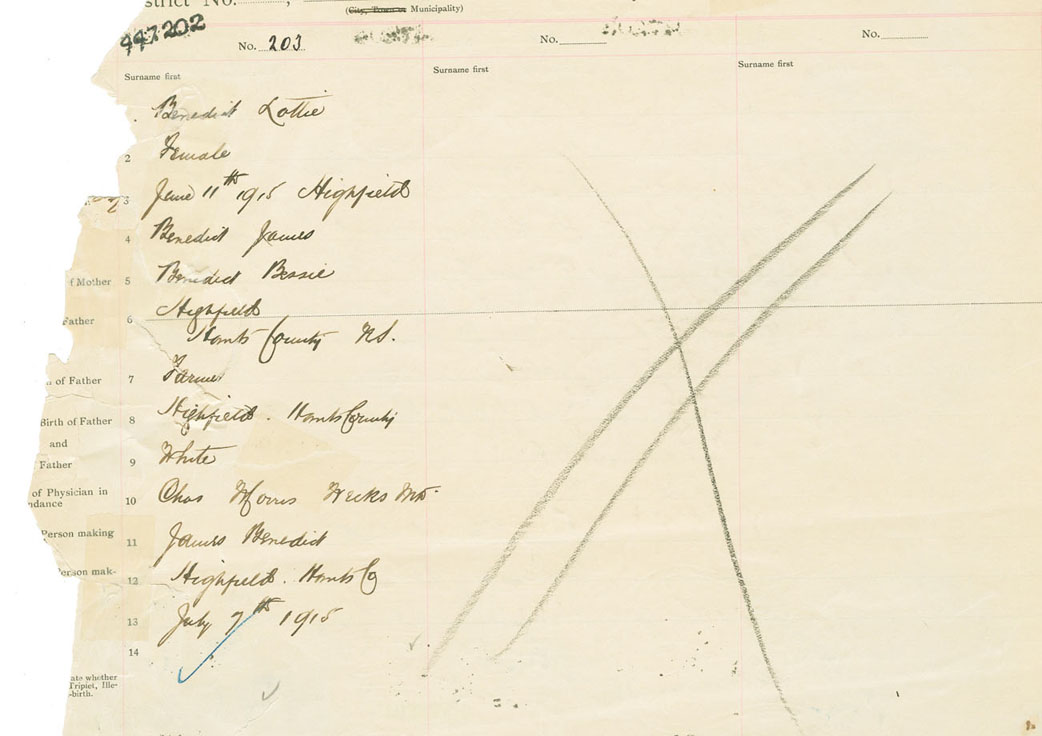 strict No.
(City, Town or Municipality)
447202
No. 203
No.
No.
Surname first
Surname first
Surname first
Benedict Lottie
2 Female
3 June 11th 1915 Highfield
4 Benedict James
f Mother 5 Benedict Bessie
Father 6 Highfield
Hants County N.S.
of Father 7 Farmer
Birth of Father 8 Highfield. Hants County
and
Father 9 White
of Physician in
ndance 10 Chas Morris Weeks M.D.
Person making 11 James Benedict
erson mak- 12 Highfield. Hants Co
13 July 7th 1915
14
ate whether
Triplet, Ille-
-birth.